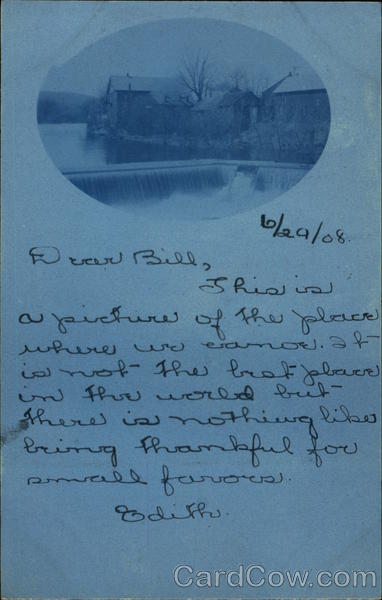 6/29/08.
Dear Bill,
This is
a picture of the place
where we canoe. It
is not the best place
in the world but
there is nothing like
being thankful for
small favors.
Edith.
CardCow.com